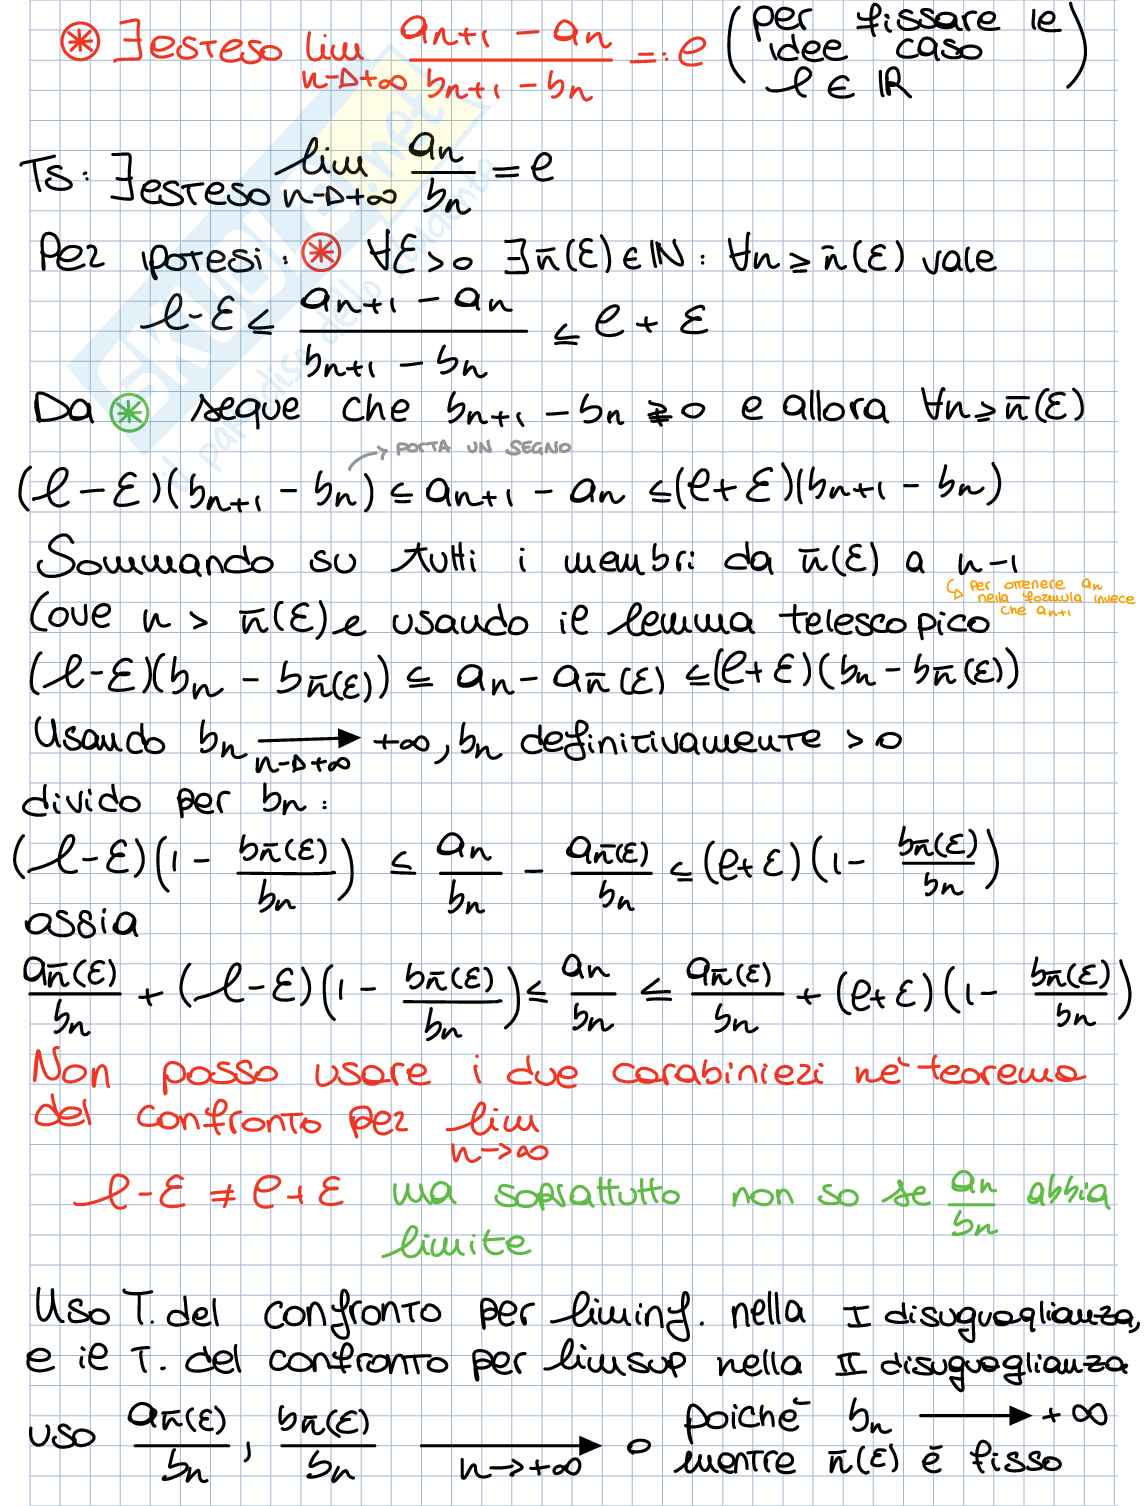 ⊛ ∃ esteso lim n→+∞ (a_{n+1} - a_n)/(b_{n+1} - b_n) =: l (per fissare le idee caso l ∈ ℝ)
Ts: ∃ esteso lim n→+∞ a_n/b_n = l
Per ipotesi: ⊛ ∀ε>0 ∃n̄(ε)∈ℕ: ∀n≥n̄(ε) vale
l-ε ≤ (a_{n+1} - a_n)/(b_{n+1} - b_n) ≤ l+ε
Da ⊛ segue che b_{n+1} - b_n ≩ 0 e allora ∀n≥n̄(ε)
→ PORTA UN SEGNO
(l-ε)(b_{n+1} - b_n) ≤ a_{n+1} - a_n ≤ (l+ε)(b_{n+1} - b_n)
Sommando su tutti i membri da n̄(ε) a n-1
↳ per ottenere a_n nella formula invece che a_{n+1}
(ove n > n̄(ε) e usando il lemma telescopico
(l-ε)(b_n - b_{n̄(ε)}) ≤ a_n - a_{n̄(ε)} ≤ (l+ε)(b_n - b_{n̄(ε)})
Usando b_n → n→+∞ +∞, b_n definitivamente > 0
divido per b_n:
(l-ε)(1 - b_{n̄(ε)}/b_n) ≤ a_n/b_n - a_{n̄(ε)}/b_n ≤ (l+ε)(1 - b_{n̄(ε)}/b_n)
assia
a_{n̄(ε)}/b_n + (l-ε)(1 - b_{n̄(ε)}/b_n) ≤ a_n/b_n ≤ a_{n̄(ε)}/b_n + (l+ε)(1 - b_{n̄(ε)}/b_n)
Non posso usare i due carabinieri nè teorema
del confronto per lim n→∞
l-ε ≠ l+ε ma soprattutto non so se a_n/b_n abbia
limite
Uso T. del confronto per liminf. nella I disuguaglianza,
e il T. del confronto per limsup nella II disuguaglianza
uso a_{n̄(ε)}/b_n, b_{n̄(ε)}/b_n → n→+∞ 0 poichè b_n → +∞
mentre n̄(ε) è fisso
SKUOLA.net
il paradiso dello